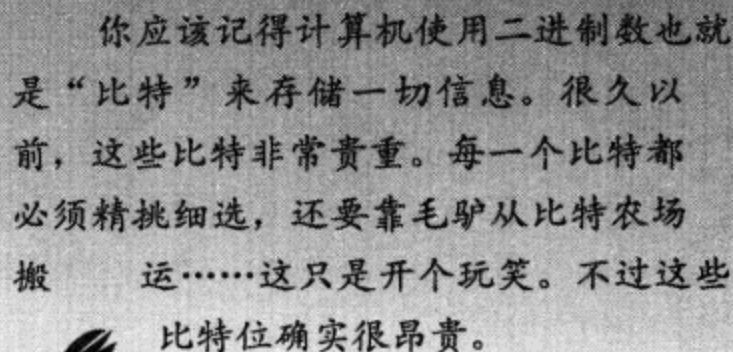 你应该记得计算机使用二进制数也就
是“比特”来存储一切信息。很久以
前，这些比特非常贵重。每一个比特都
必须精挑细选，还要靠毛驴从比特农场
搬 运……这只是开个玩笑。不过这些
比特位确实很昂贵。